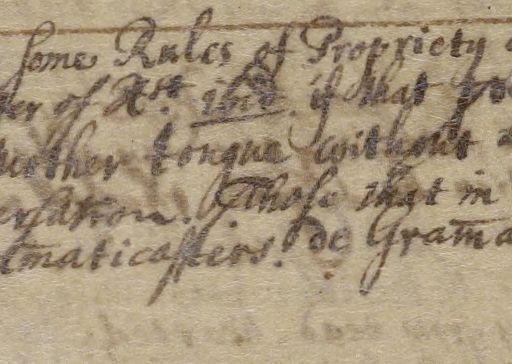 some Rules of Propriety
of Ast. ibid. if that
mother tongue without
ersation. Those that in
m̄aticasters. de Gram̄a